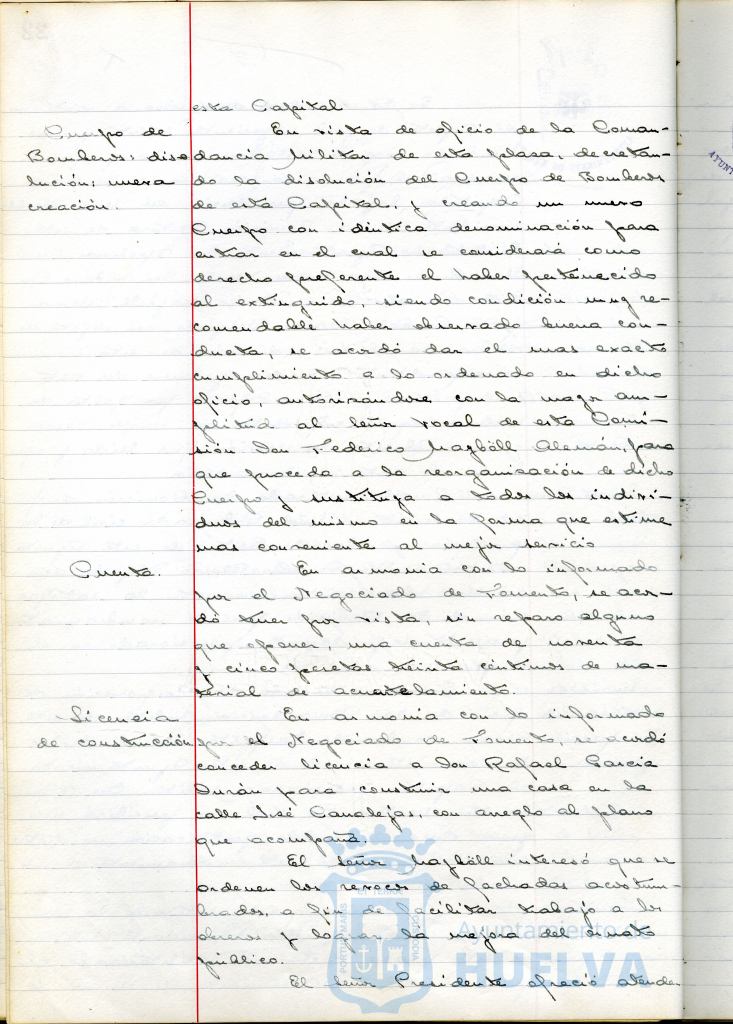 esta Capital
Cuerpo de
Bomberos: diso
lución: nueva
creación.
En vista de oficio de la Coman-
dancia Militar de esta plaza, decretan-
do la disolución del Cuerpo de Bomberos
de esta Capital, y creando un nuevo
Cuerpo con idéntica denominación para
entrar en el cual se considerará como
derecho preferente el haber pertenecido
al extinguido, siendo condición muy re-
comendable haber observado buena con-
ducta, se acordó dar el mas exacto
cumplimiento a lo ordenado en dicho
oficio, autorizándose con la mayor am-
plitud al señor vocal de esta Comi-
sión Don Federico Mayböll Alemán, para
que proceda a la reorganización de dicho
Cuerpo y sustituya a todos los indivi-
duos del mismo en la forma que estime
mas conveniente al mejor servicio
Cuenta.
En armonia con lo informado
por el Negociado de Fomento, se acor-
dó tener por vista, sin reparo alguno
que oponer, una cuenta de noventa
y cinco pesetas treinta céntimos de ma-
terial de acuartelamiento.
Licencia
de construcción
En armonia con lo informado
por el Negociado de Fomento, se acordó
conceder licencia a Don Rafael Garcia
Durán para construir una casa en la
calle José Canalejas, con arreglo al plano
que acompaña.
El señor Mayböll interesó que se
ordenen los revocos de fachadas acostum-
brados, a fin de facilitar trabajo a los
obreros y lograr la mejora del ornato
público.
El señor Presidente ofreció atender
Ayuntamiento de
HUELVA